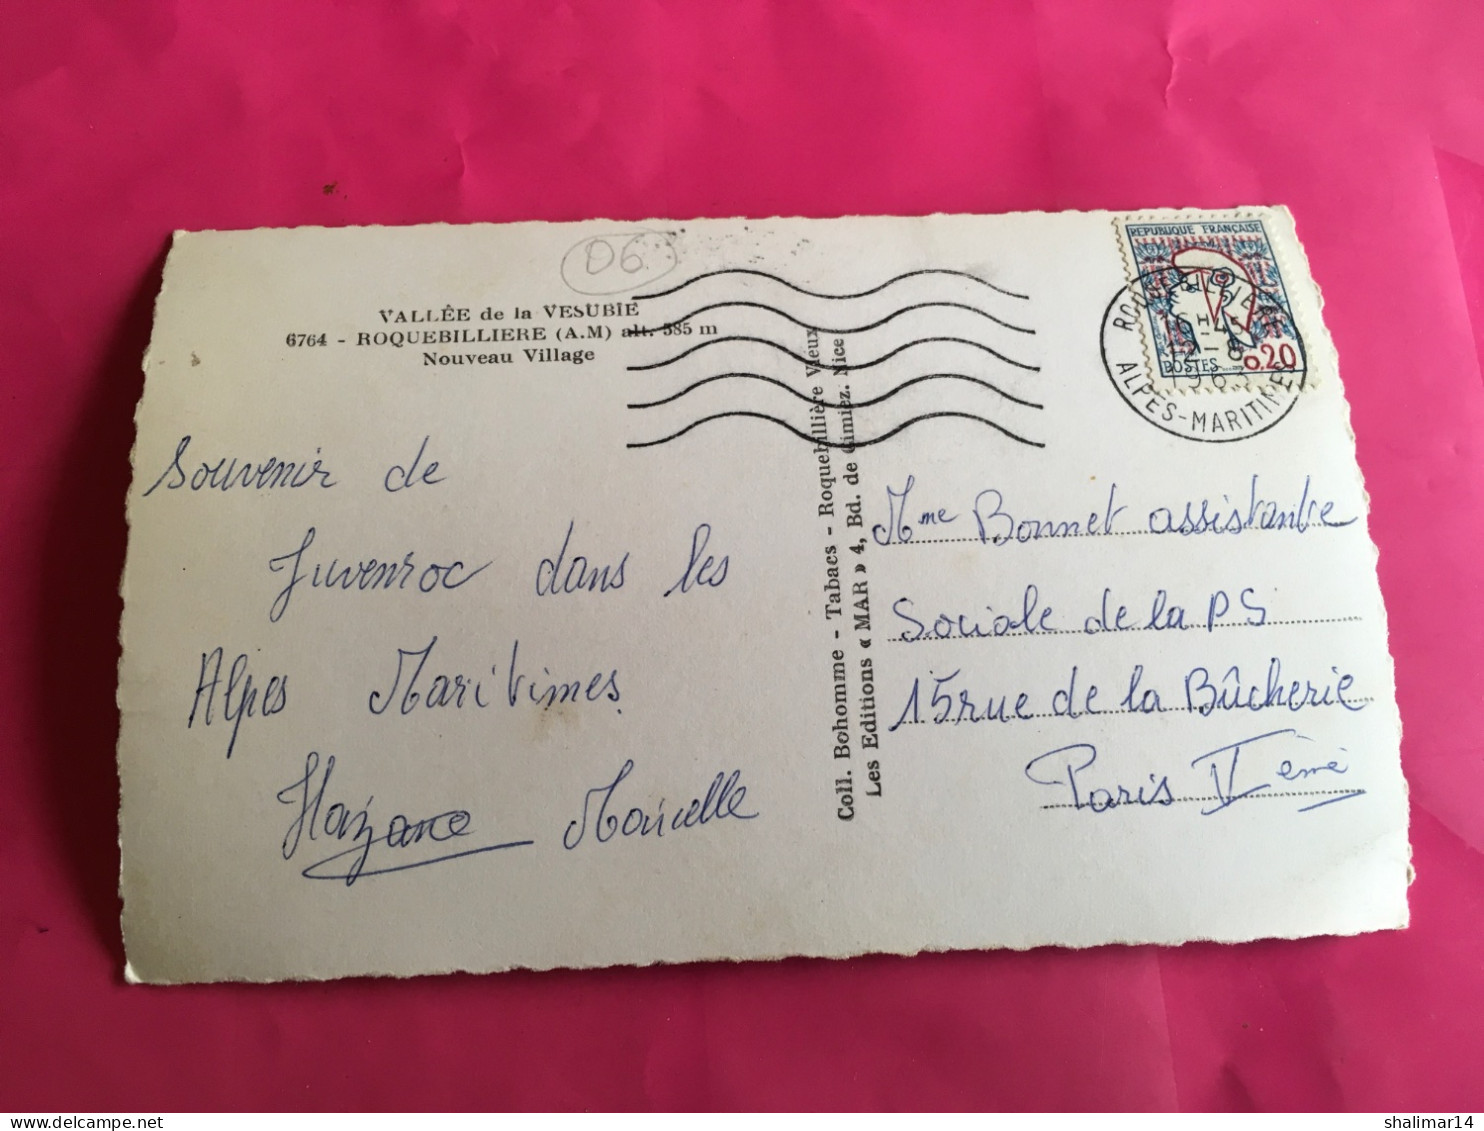 06
VALLÉE de la VESUBIE
6764 - ROQUEBILLIERE (A.M) alt. 585 m
Nouveau Village
Souvenir de
Juvenroc dans les
Alpes Maritimes
Marcelle
Coll. Bohomme - Tabacs - Roquebillière Vieux
Les Editions « MAR » 4, Bd. de Cimiez. Nice
REPUBLIQUE FRANÇAISE
POSTES 0,20
16 H 45
12 - 8
1963
ALPES-MARITIMES
Mme Bonnet assistante
Sociale de la PS
15 rue de la Bûcherie
Paris Vème
shalimar14